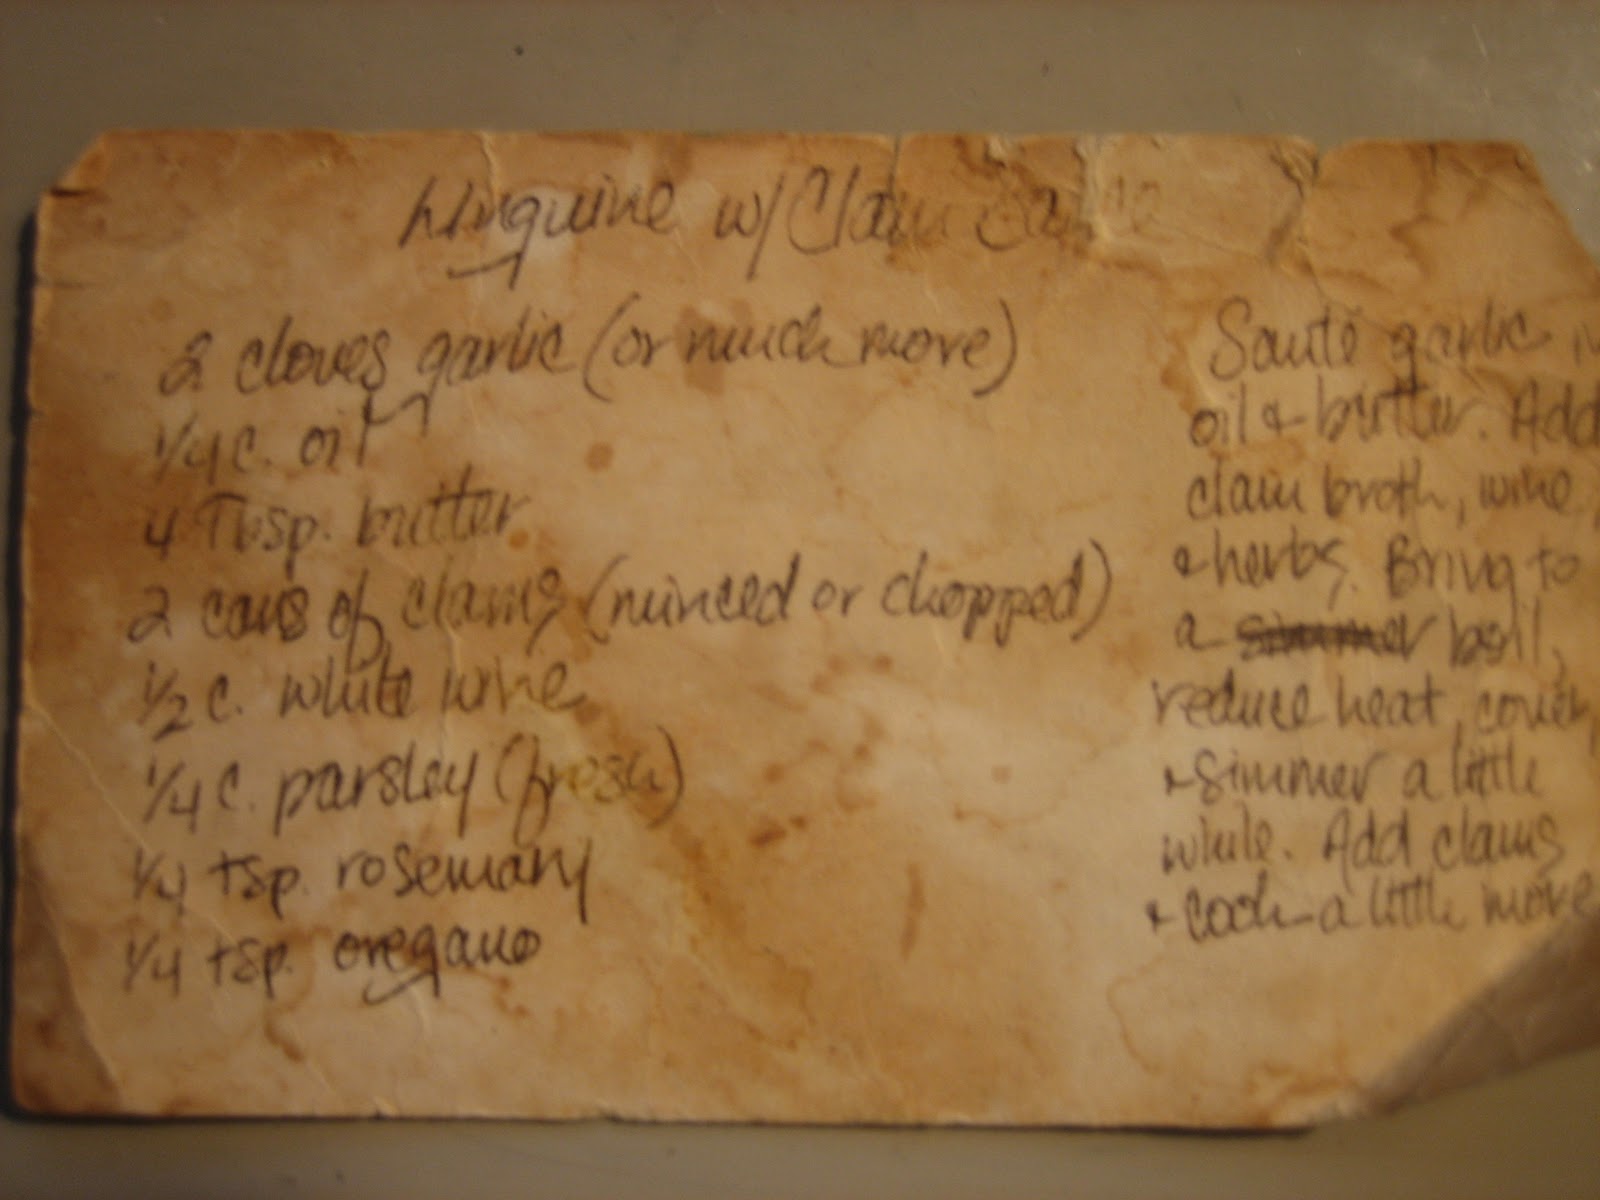 Linguine w/ Clam Sauce
2 cloves garlic (or much more)
1/4 c. oil
4 Tbsp. butter
2 cans of clams (minced or chopped)
1/2 c. white wine
1/4 c. parsley (fresh)
1/4 tsp. rosemary
1/4 tsp. oregano
Sauté garlic in
oil & butter. Add
clam broth, wine,
& herbs. Bring to
a simmer boil,
reduce heat, cover,
& simmer a little
while. Add clams
& cook a little more